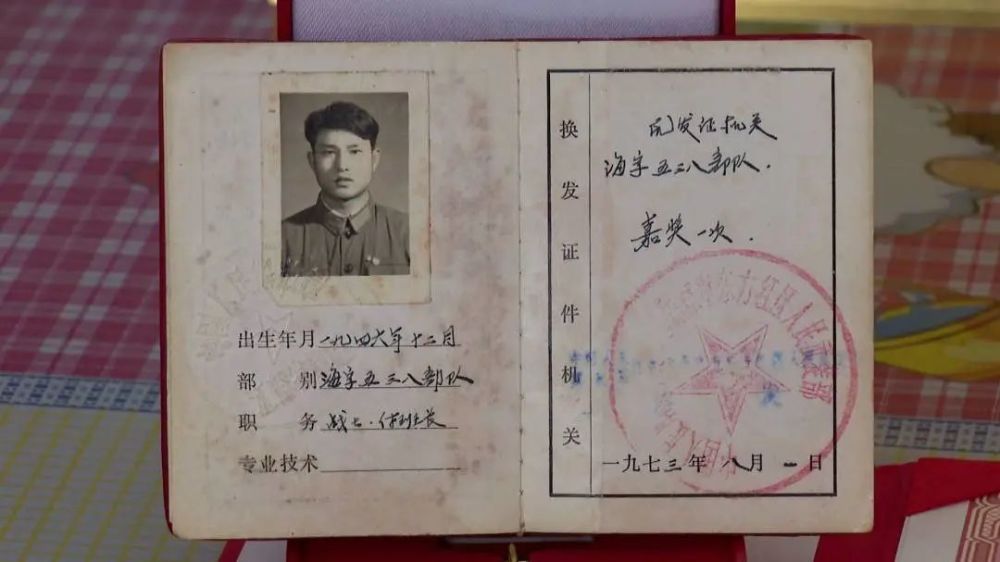 出生年月一九四六年十二月
部 别海字五三八部队
职 务战士·付班长
专业技术
换发证件机关
发证机关
海字五三八部队.
嘉奖一次.
一九七三年八月一日